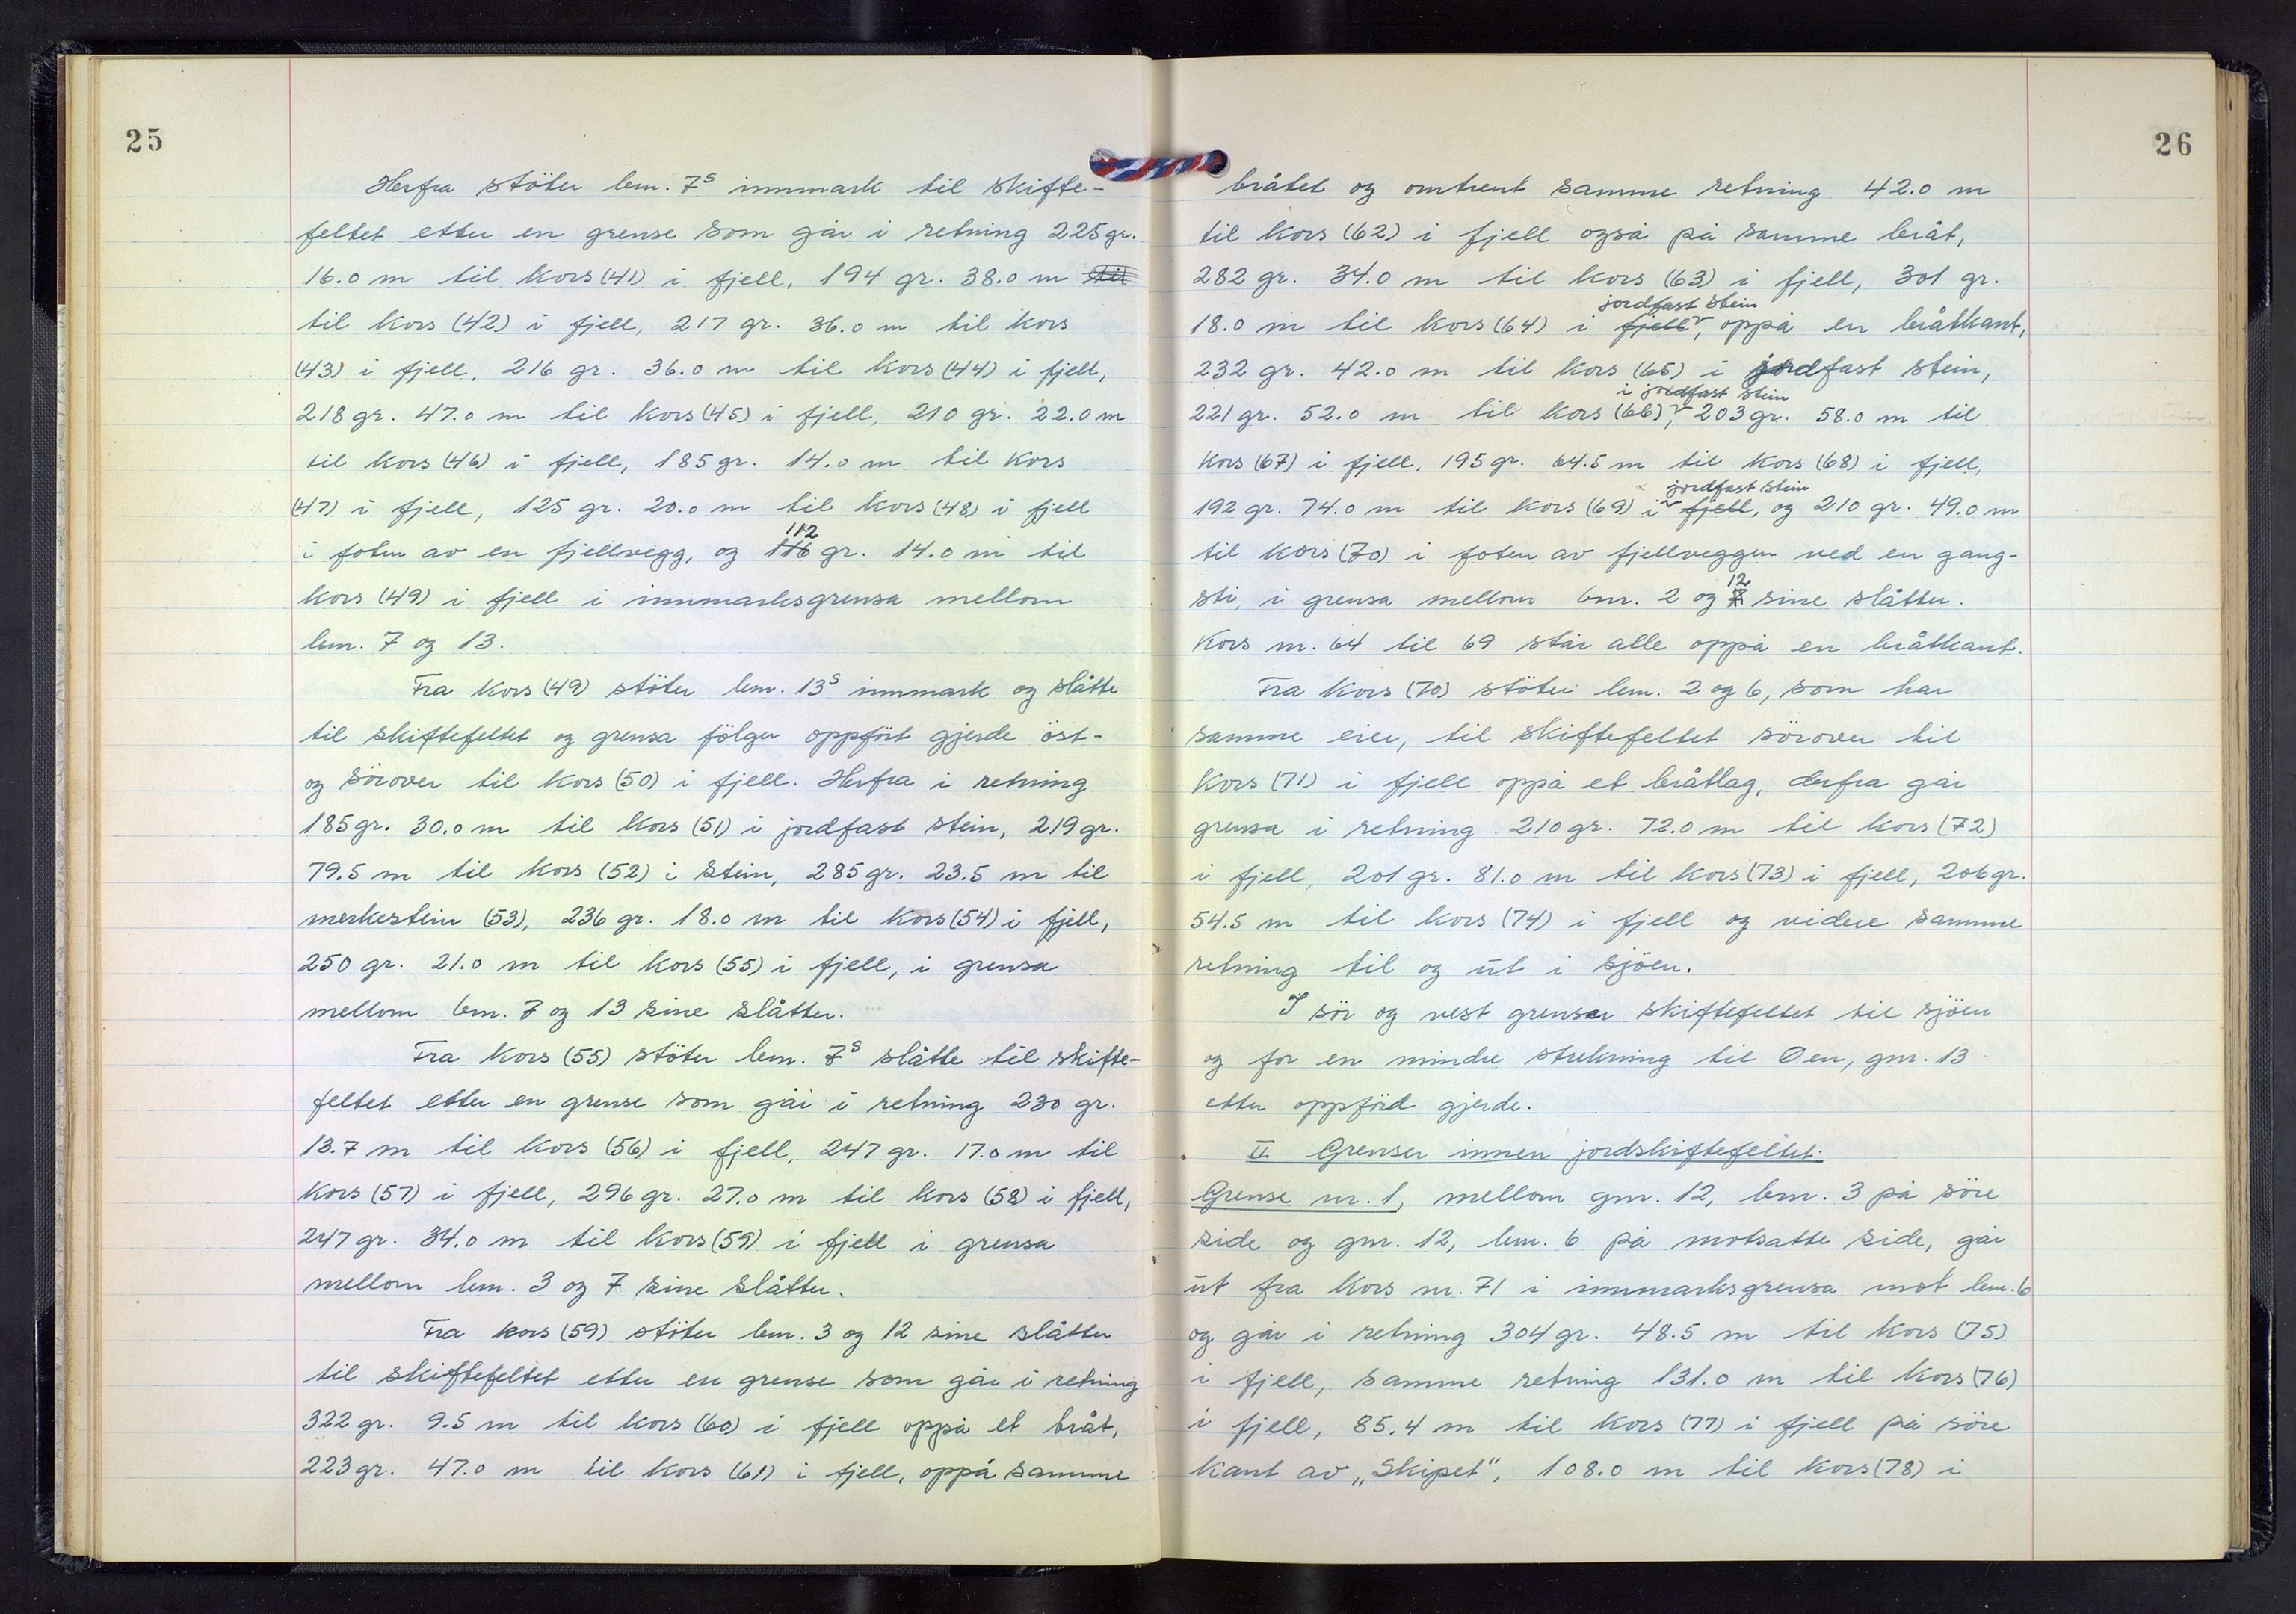 25
Herfra stöter bnr. 7s innmark til skifte-
feltet etter en grense som går i retning 225 gr.
16.0 m til kors (41) i fjell, 194 gr. 38.0 m til
til kors (42) i fjell, 217 gr. 36.0 m til kors
(43) i fjell, 216 gr. 36.0 m til kors (44) i fjell,
218 gr. 47.0 m til kors (45) i fjell, 210 gr. 22.0 m
til kors (46) i fjell, 185 gr. 14.0 m til kors
(47) i fjell, 125 gr. 20.0 m til kors (48) i fjell
112
i foten av en fjellvegg, og 116 gr. 14.0 m til
kors (49) i fjell i innmarksgrensa mellom
bnr. 7 og 13.
Fra kors (49) stöter bnr. 13s innmark og slåtte
til skiftefeltet og grensa fölger oppfört gjerde öst-
og sörover til kors (50) i fjell. Herfra i retning
185 gr. 30.0 m til kors (51) i jordfast stein, 219 gr.
79.5 m til kors (52) i stein, 285 gr. 23.5 m til
merkestein (53), 236 gr. 18.0 m til kors (54) i fjell,
250 gr. 21.0 m til kors (55) i fjell, i grensa
mellom bnr. 7 og 13 sine slåtter.
Fra kors (55) stöter bnr. 7s slåtte til skifte-
feltet etter en grense som går i retning 230 gr.
13.7 m til kors (56) i fjell, 247 gr. 17.0 m til
kors (57) i fjell, 296 gr. 27.0 m til kors (58) i fjell,
247 gr. 34.0 m til kors (59) i fjell i grensa
mellom bnr. 3 og 7 sine slåtter.
Fra kors (59) stöter bnr. 3 og 12 sine slåtter
til skiftefeltet etter en grense som går i retning
322 gr. 9.5 m til kors (60) i fjell oppå et bråt,
223 gr. 47.0 m til kors (61) i fjell, oppå samme
26
bråtet og omtrent samme retning 42.0 m
til kors (62) i fjell også på samme bråt,
282 gr. 34.0 m til kors (63) i fjell, 301 gr.
jordfast stein
18.0 m til kors (64) i fjell, oppå en bråtkant,
232 gr. 42.0 m til kors (65) i jordfast stein,
i jordfast stein
221 gr. 52.0 m til kors (66), 203 gr. 58.0 m til
kors (67) i fjell, 195 gr. 64.5 m til kors (68) i fjell,
jordfast stein
192 gr. 74.0 m til kors (69) i fjell, og 210 gr. 49.0 m
til kors (70) i foten av fjellveggen ved en gang-
12
sti, i grensa mellom bnr. 2 og 7 sine slåtter.
Kors nr. 64 til 69 står alle oppå en bråtkant.
Fra kors (70) stöter bnr. 2 og 6, som har
samme eier, til skiftefeltet sörover til
kors (71) i fjell oppå et bråtlag, derfra går
grensa i retning 210 gr. 72.0 m til kors (72)
i fjell, 201 gr. 81.0 m til kors (73) i fjell, 206 gr.
54.5 m til kors (74) i fjell og videre samme
retning til og ut i sjöen.
I sör og vest grenser skiftefeltet til sjöen
og for en mindre strekning til Oen, gnr. 13
etter oppförd gjerde.
II. Grenser innen jordskiftefeltet.
Grense nr. 1, mellom gnr. 12, bnr. 3 på söre
side og gnr. 12, bnr. 6 på motsatte side, går
ut fra kors nr. 71 i innmarksgrensa mot bnr. 6
og går i retning 304 gr. 48.5 m til kors (75)
i fjell, samme retning 131.0 m til kors (76)
i fjell, 85.4 m til kors (77) i fjell på söre
kant av „Skipet", 108.0 m til kors (78) i